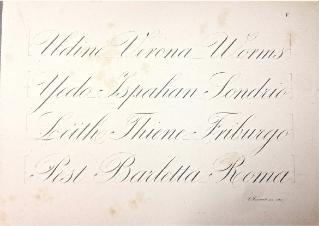 Udine Verona Worms
Yedo Ispahan Sondrio
Leith Thiene Friburgo
Pest Barletta Roma